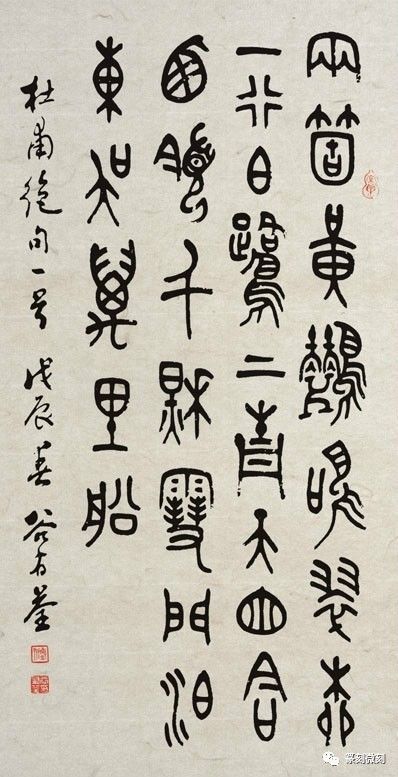 兩箇黃鸝鳴翠柳
一行白鷺上青天窗含
西嶺千秋雪門泊
東吳萬里船
杜甫絕句一首 戊辰春 谷有荃
篆刻微刻